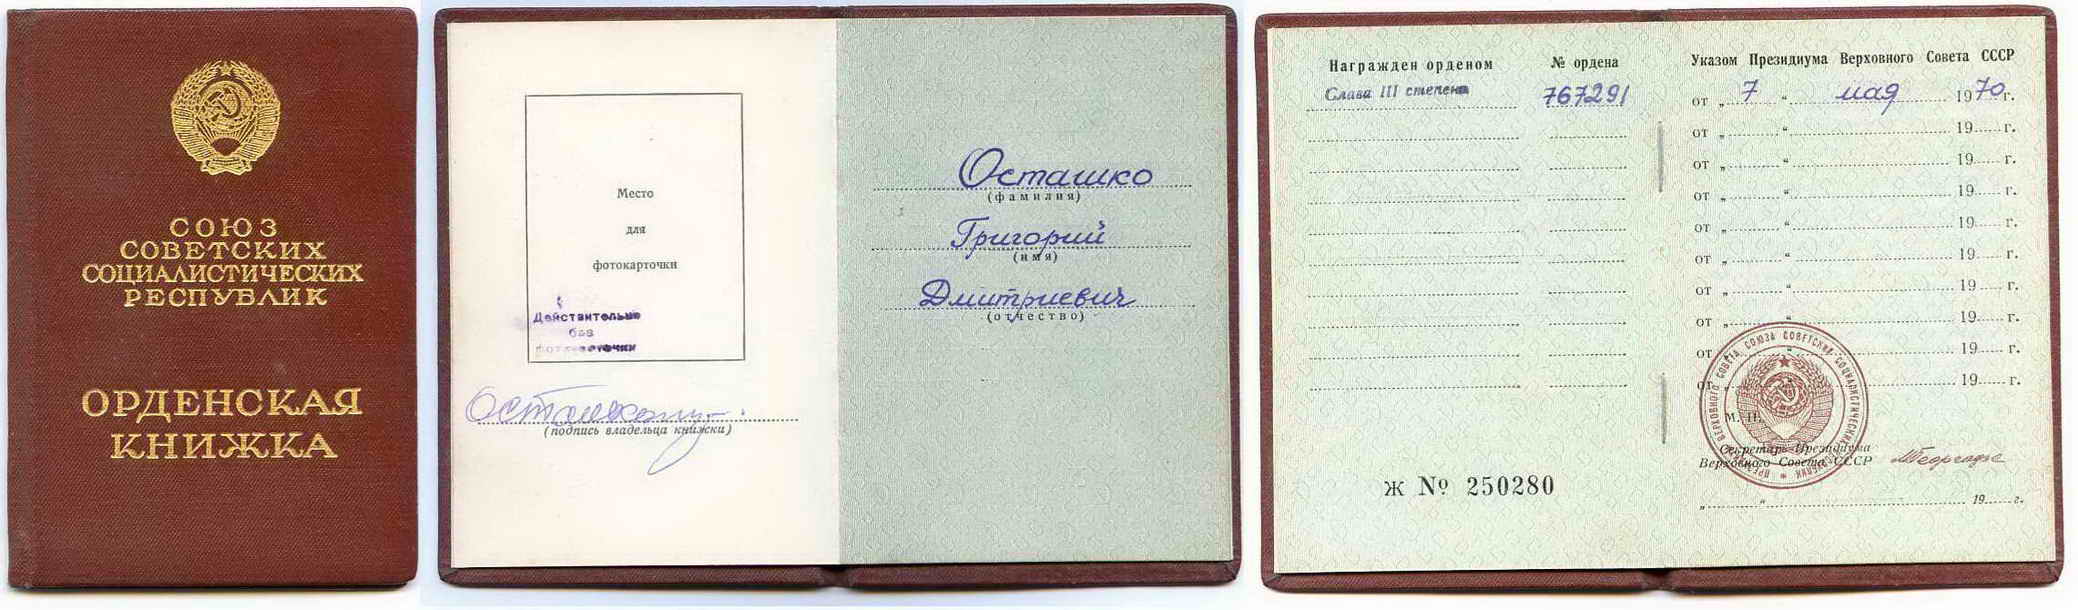 СОЮЗ
СОВЕТСКИХ
СОЦИАЛИСТИЧЕСКИХ
РЕСПУБЛИК
ОРДЕНСКАЯ
КНИЖКА
Место
для
фотокарточки
Действительно
без
фотокарточки
(подпись владельца книжки)
Осташко
(фамилия)
Григорий
(имя)
Дмитриевич
(отчество)
Награжден орденом № ордена
Слава III степени 767291
Ж № 250280
Указом Президиума Верховного Совета СССР
от „ 7 “ мая 1970 г.
от „ “ 19 г.
от „ “ 19 г.
от „ “ 19 г.
от „ “ 19 г.
от „ “ 19 г.
от „ “ 19 г.
от „ “ 19 г.
от „ “ 19 г.
от „ “ 19 г.
М. П.
Секретарь Президиума
Верховного Совета СССР МГеоргадзе
„ “ 19 г.
ПРЕЗИДИУМ ВЕРХОВНОГО СОВЕТА СОЮЗА СОВЕТСКИХ СОЦИАЛИСТИЧЕСКИХ РЕСПУБЛИК